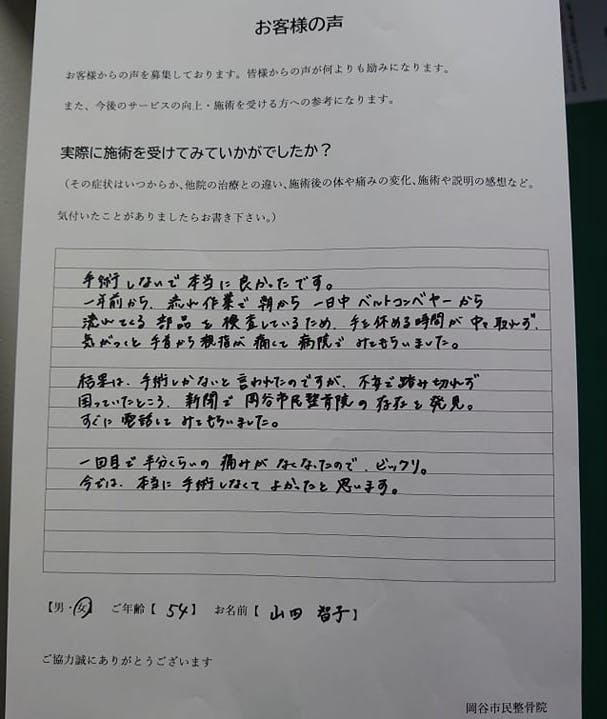 お客様の声
お客様からの声を募集しております。皆様からの声が何よりも励みになります。
また、今後のサービスの向上・施術を受ける方への参考になります。
実際に施術を受けてみていかがでしたか？
（その症状はいつからか、他院の治療との違い、施術後の体や痛みの変化、施術や説明の感想など。
気付いたことがありましたらお書き下さい。）
手術しないで本当に良かったです。
一年前から、流れ作業で朝から一日中ベルトコンベヤーから
流れてくる部品を検査しているため、手を休める時間が中々取れず、
気がつくと手首から親指が痛くて病院でみてもらいました。
結果は、手術しかないと言われたのですが、不安で踏み切れず
困っていたところ、新聞で岡谷市民整骨院の存在を発見。
すぐに電話してみてもらいました。
一回目で半分くらいの痛みがなくなったので、ビックリ。
今では、本当に手術しなくてよかったと思います。
【男・女】 ご年齢【 54 】 お名前【 山田 智子 】
ご協力誠にありがとうございます
岡谷市民整骨院